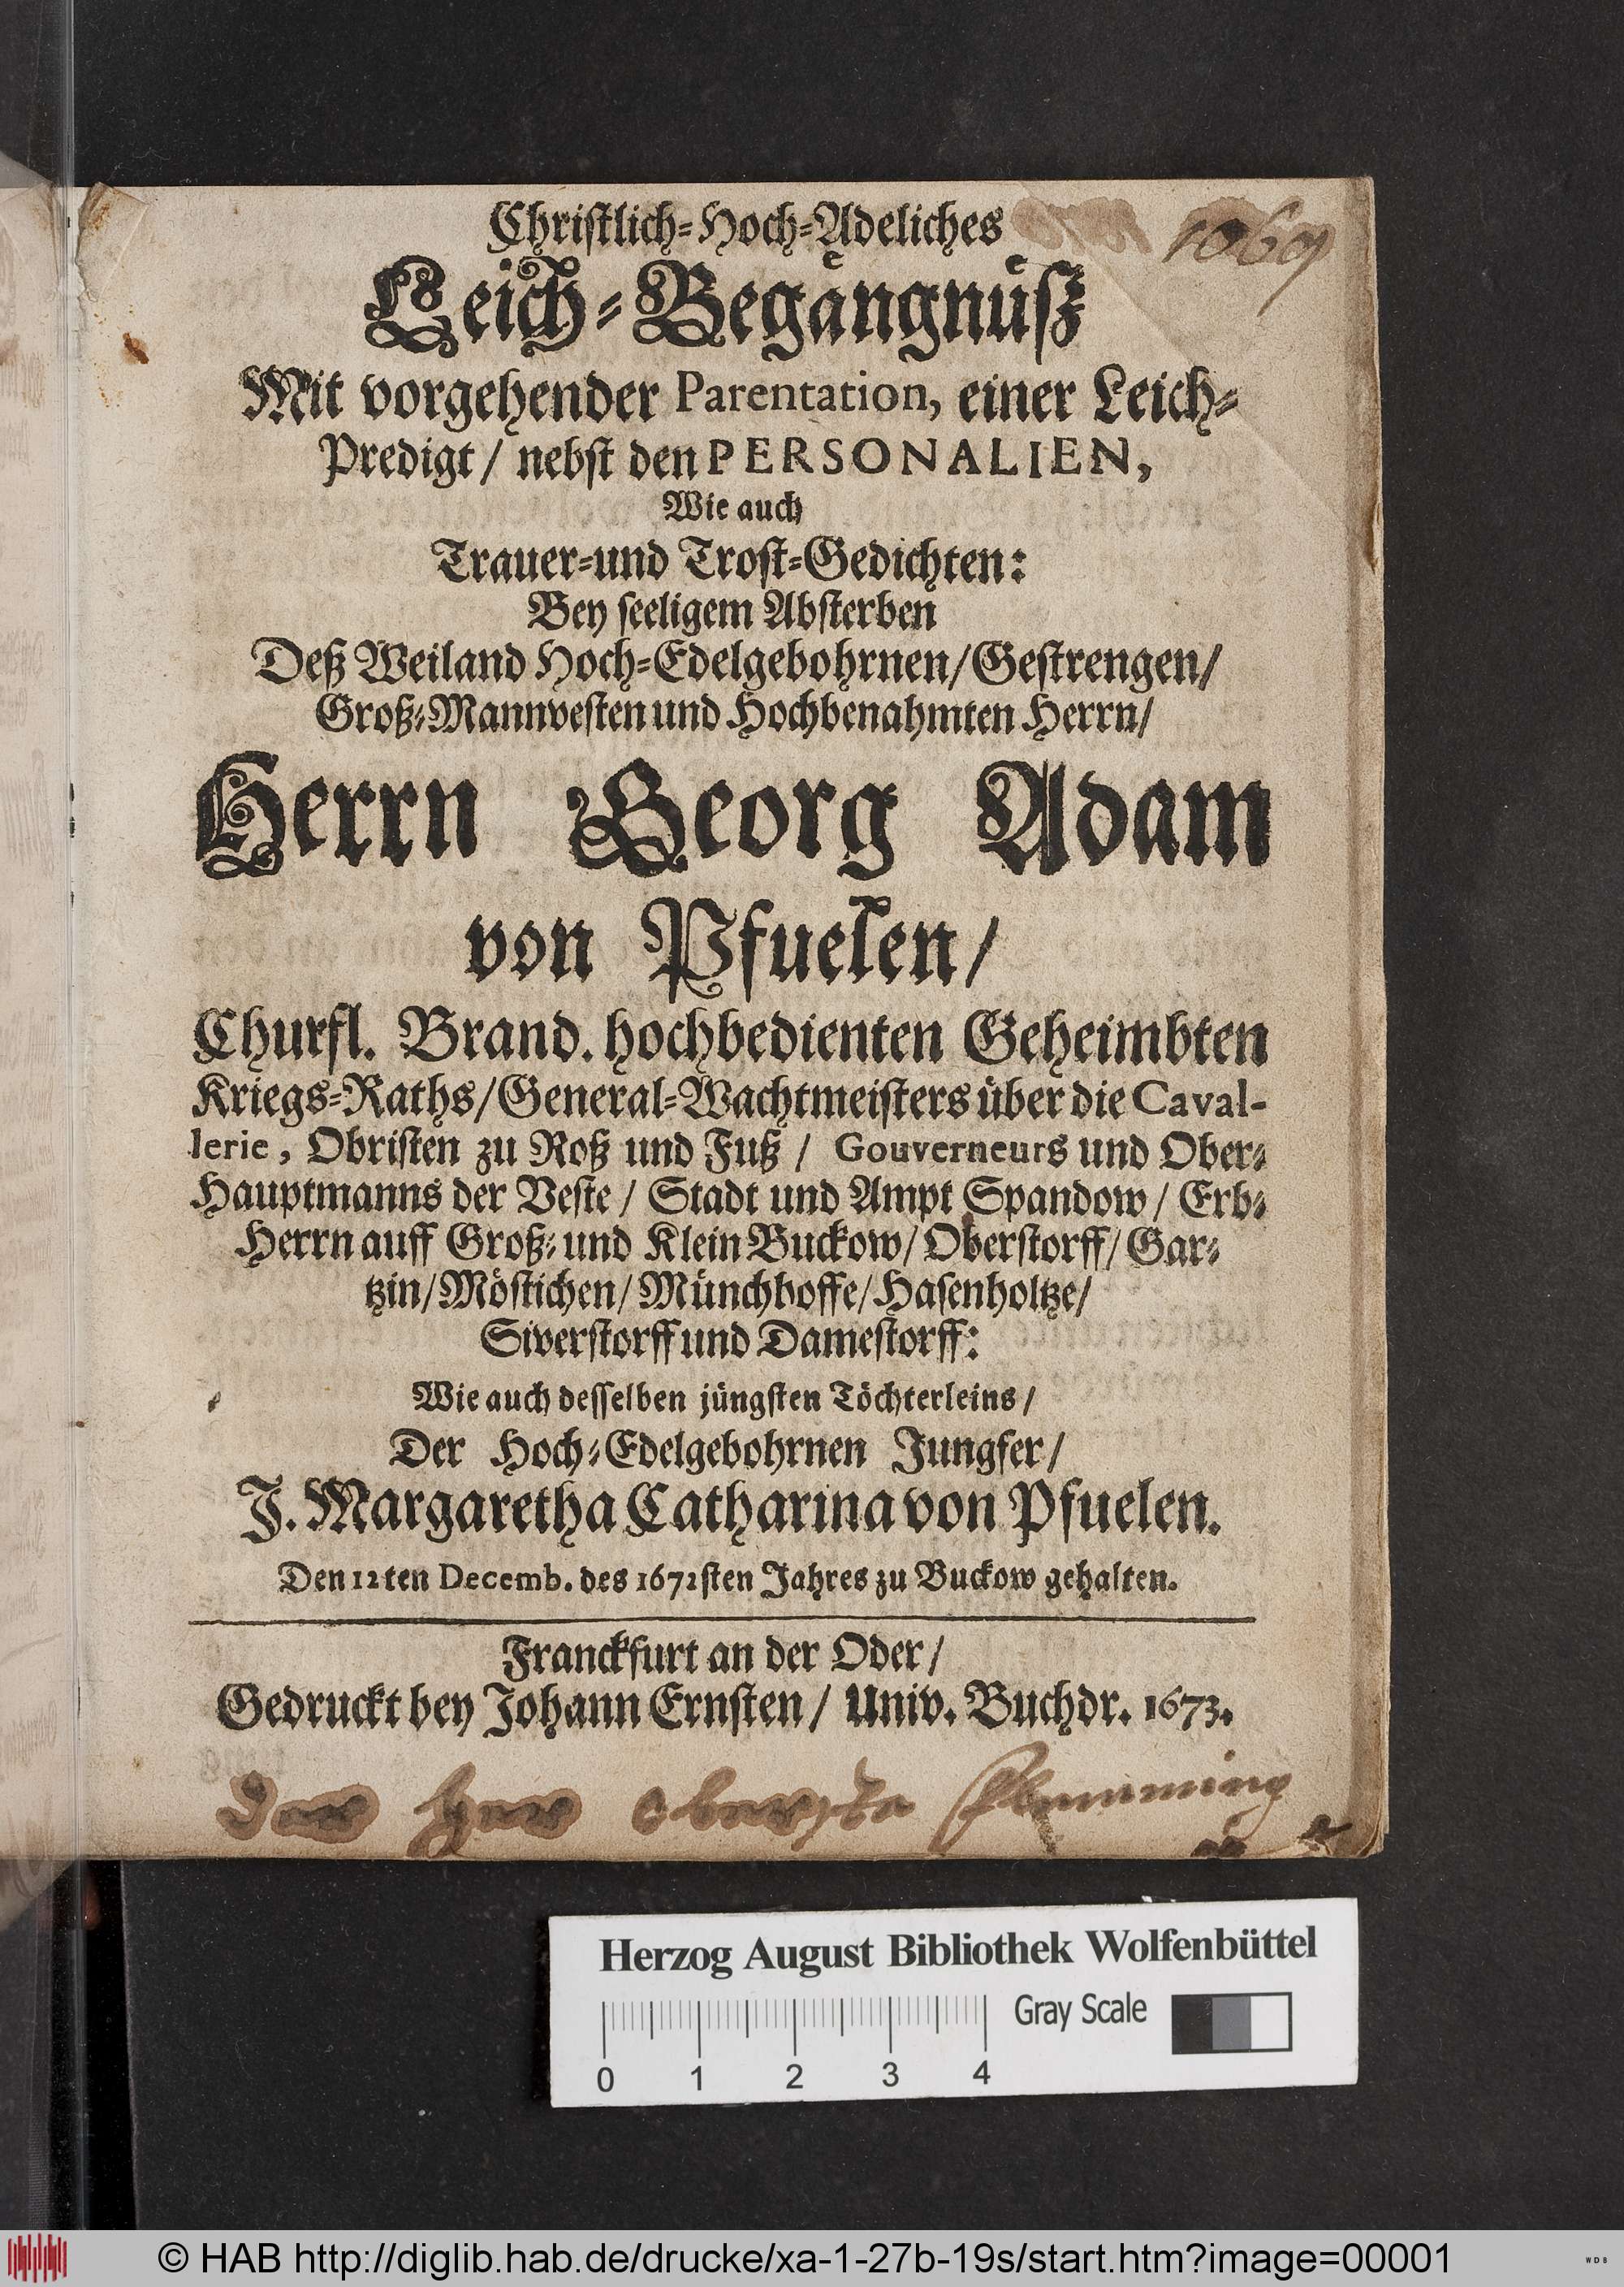 Christlich-Hoch-Adeliches
1069
Leich-Begängnüß
Mit vorgehender Parentation, einer Leich-
Predigt / nebst den PERSONALIEN,
Wie auch
Trauer-und Trost-Gedichten:
Bey seeligem Absterben
Deß Weiland Hoch-Edelgebohrnen/ Gestrengen/
Groß-Mannvesten und Hochbenahmten Herrn/
Herrn Georg Adam
von Pfuelen/
Churfl. Brand. hochbedienten Geheimbten
Kriegs-Raths/ General-Wachtmeisters über die Caval-
lerie, Obristen zu Roß und Fuß / Gouverneurs und Ober-
Hauptmanns der Veste / Stadt und Ampt Spandow / Erb-
Herrn auff Groß- und Klein Buckow/ Oberstorff/ Gar-
tzin/ Möstichen/ Münchhoffe/ Hasenholtze/
Siverstorff und Damestorff:
Wie auch desselben jüngsten Töchterleins /
Der Hoch-Edelgebohrnen Jungfer/
J. Margaretha Catharina von Pfuelen.
Den 12ten Decemb. des 1672sten Jahres zu Buckow gehalten.
Franckfurt an der Oder/
Gedruckt bey Johann Ernsten/ Univ. Buchdr. 1673.
Der Her Oberste Flemming
Herzog August Bibliothek Wolfenbüttel
Gray Scale
0 1 2 3 4
© HAB http://diglib.hab.de/drucke/xa-1-27b-19s/start.htm?image=00001
WDB